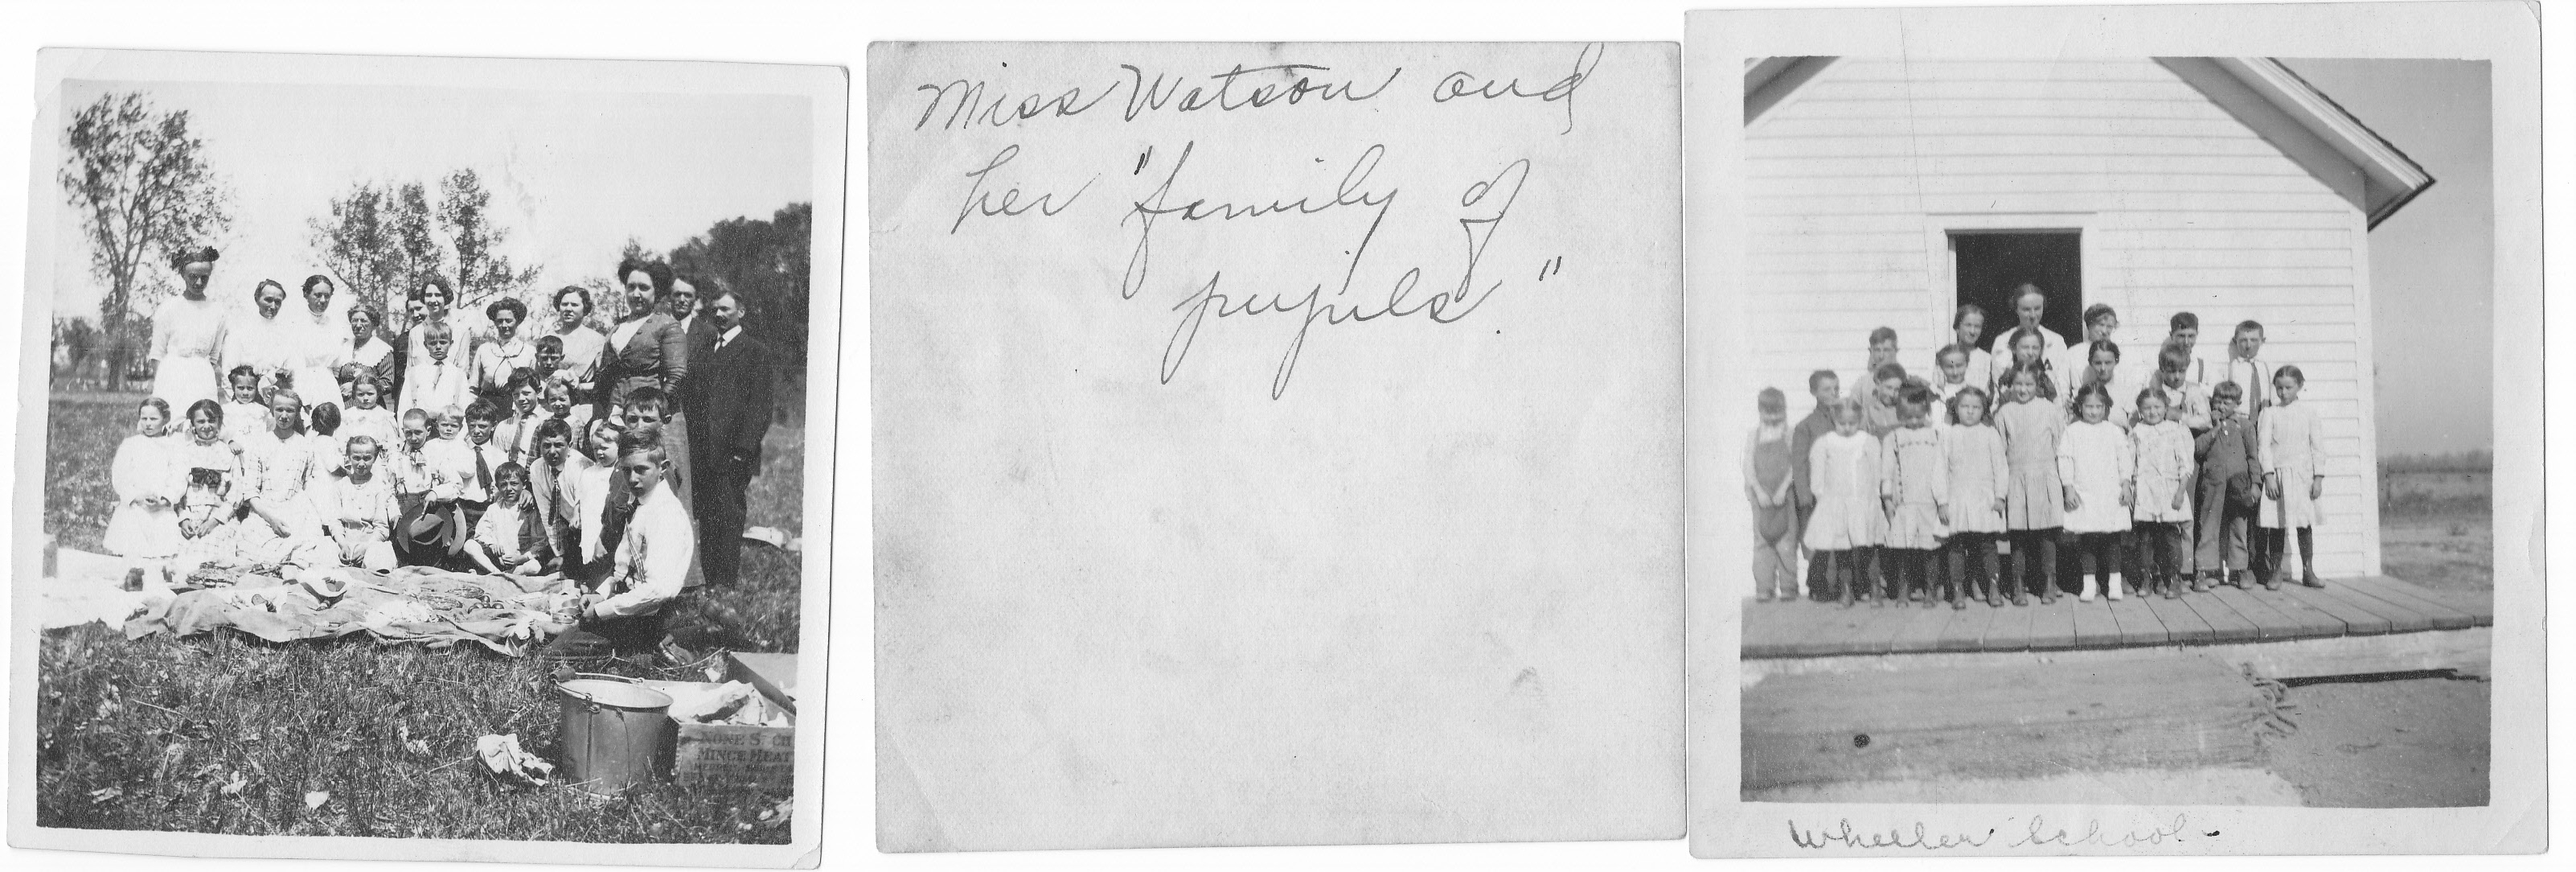 Miss Watson and
her "family of
pupils."
NONE S CH
MINCE MEAT
Wheeler School-